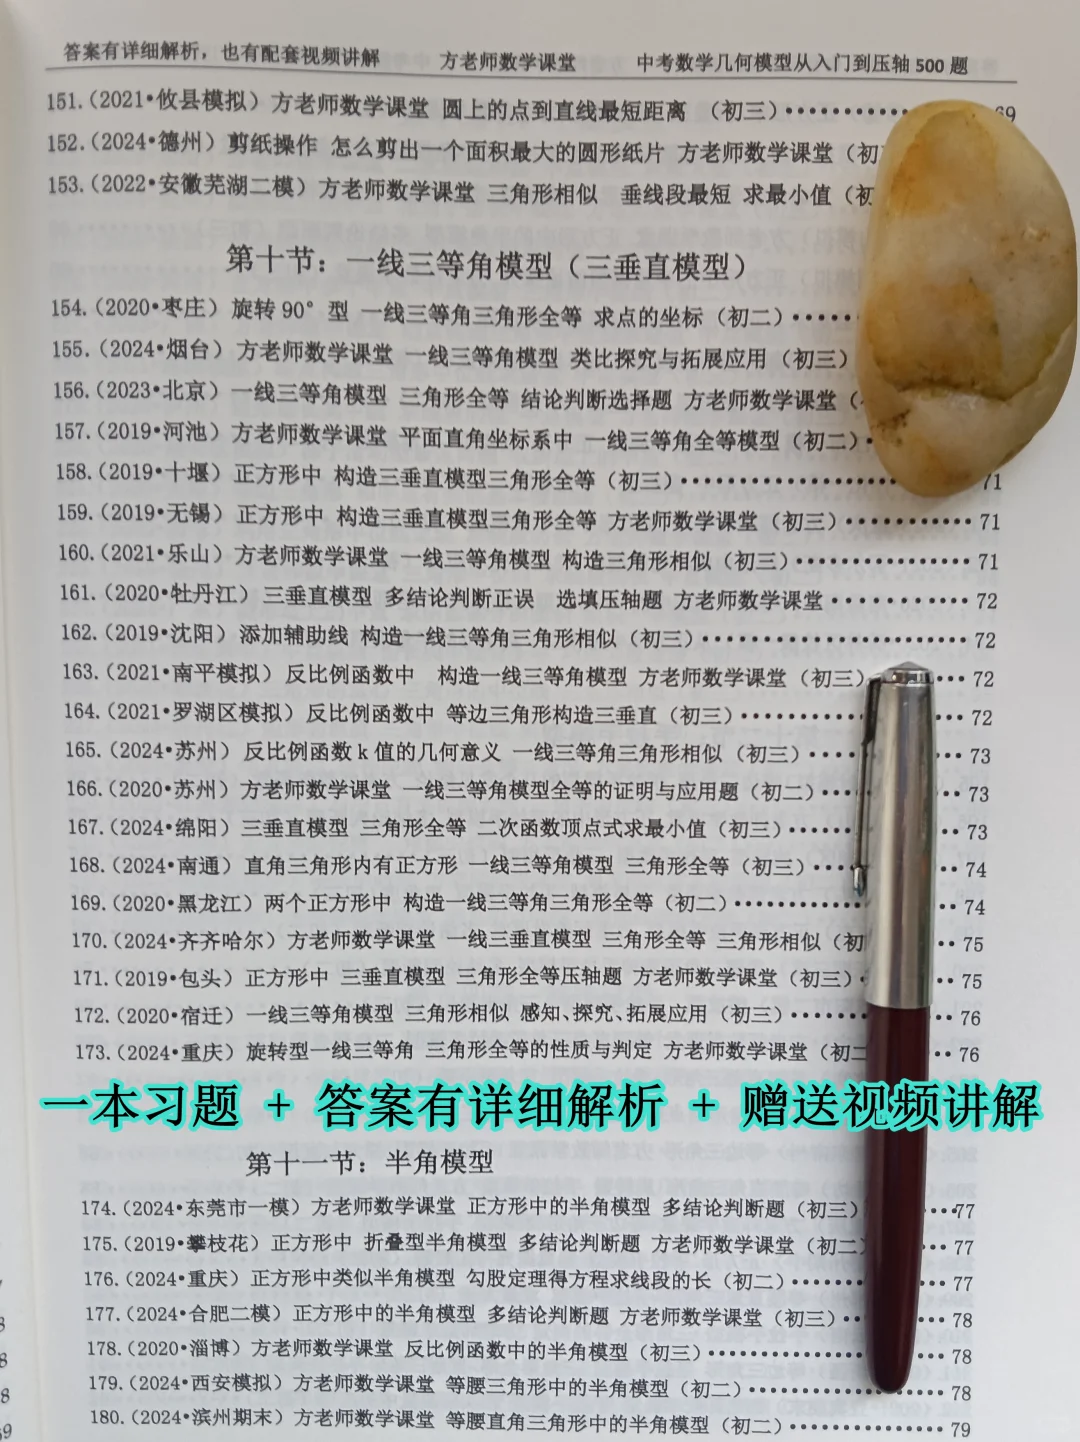 答案有详细解析，也有配套视频讲解 方老师数学课堂 中考数学几何模型从入门到压轴500题
151.（2021•攸县模拟）方老师数学课堂 圆上的点到直线最短距离 （初三）••••••••••69
152.（2024•德州）剪纸操作 怎么剪出一个面积最大的圆形纸片 方老师数学课堂（初
153.（2022•安徽芜湖二模）方老师数学课堂 三角形相似 垂线段最短 求最小值（初
第十节：一线三等角模型（三垂直模型）
154.（2020•枣庄）旋转90°型 一线三等角三角形全等 求点的坐标（初二）•••••
155.（2024•烟台）方老师数学课堂 一线三等角模型 类比探究与拓展应用（初三）
156.（2023•北京）一线三等角模型 三角形全等 结论判断选择题 方老师数学课堂（
157.（2019•河池）方老师数学课堂 平面直角坐标系中 一线三等角全等模型（初二）•
158.（2019•十堰）正方形中 构造三垂直模型三角形全等（初三）•••••••••••••••••71
159.（2019•无锡）正方形中 构造三垂直模型三角形全等 方老师数学课堂（初三）•••••••••••71
160.（2021•乐山）方老师数学课堂 一线三等角模型 构造三角形相似（初三）•••••••••••••••71
161.（2020•牡丹江）三垂直模型 多结论判断正误 选填压轴题 方老师数学课堂•••••••••••72
162.（2019•沈阳）添加辅助线 构造一线三等角三角形相似（初三）••••••••••••••••••••••72
163.（2021•南平模拟）反比例函数中 构造一线三等角模型 方老师数学课堂（初三）•••72
164.（2021•罗湖区模拟）反比例函数中 等边三角形构造三垂直（初三）•••••••••••••••72
165.（2024•苏州）反比例函数k值的几何意义 一线三等角三角形相似（初三）•••••••73
166.（2020•苏州）方老师数学课堂 一线三等角模型全等的证明与应用题（初二）•••••73
167.（2024•绵阳）三垂直模型 三角形全等 二次函数顶点式求最小值（初三）•••••••••73
168.（2024•南通）直角三角形内有正方形 一线三等角模型 三角形全等（初三）••••••74
169.（2020•黑龙江）两个正方形中 构造一线三等角三角形全等（初二）••••••••••••••74
170.（2024•齐齐哈尔）方老师数学课堂 一线三垂直模型 三角形全等 三角形相似（初••75
171.（2019•包头）正方形中 三垂直模型 三角形全等压轴题 方老师数学课堂（初三）•••75
172.（2020•宿迁）一线三等角模型 三角形相似 感知、探究、拓展应用（初三）•••••••••76
173.（2024•重庆）旋转型一线三等角 三角形全等的性质与判定 方老师数学课堂（初二••76
一本习题 + 答案有详细解析 + 赠送视频讲解
第十一节：半角模型
174.（2024•东莞市一模）方老师数学课堂 正方形中的半角模型 多结论判断题（初三）•••77
175.（2019•攀枝花）正方形中 折叠型半角模型 多结论判断题 方老师数学课堂（初二）•••77
176.（2024•重庆）正方形中类似半角模型 勾股定理得方程求线段的长（初二）••••••••••77
177.（2024•合肥二模）正方形中的半角模型 多结论判断题 方老师数学课堂（初三）•••••78
178.（2020•淄博）方老师数学课堂 反比例函数中的半角模型（初三）•••••••••••••••••••78
179.（2024•西安模拟）方老师数学课堂 等腰三角形中的半角模型（初二）••••••••••••••••78
180.（2024•滨州期末）方老师数学课堂 等腰直角三角形中的半角模型（初二）•••••••••••••79